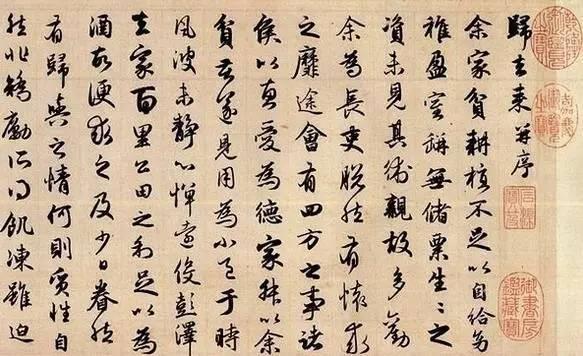 嘉慶御覽之寶
石渠寶笈
御書房鑑藏寶
歸去來并序
余家貧耕植不足以自給幼
稚盈室缾無儲粟生生之
資未見其術親故多勸
余為長吏脫然有懷求
之靡途會有四方之事諸
侯以惠愛為德家叔以余
貧苦遂見用為小邑于時
風波未靜心憚遠役彭澤
去家百里公田之利足以為
酒故便求之及少日眷然
有歸與之情何則質性自
然非矯勵所得飢凍雖迫